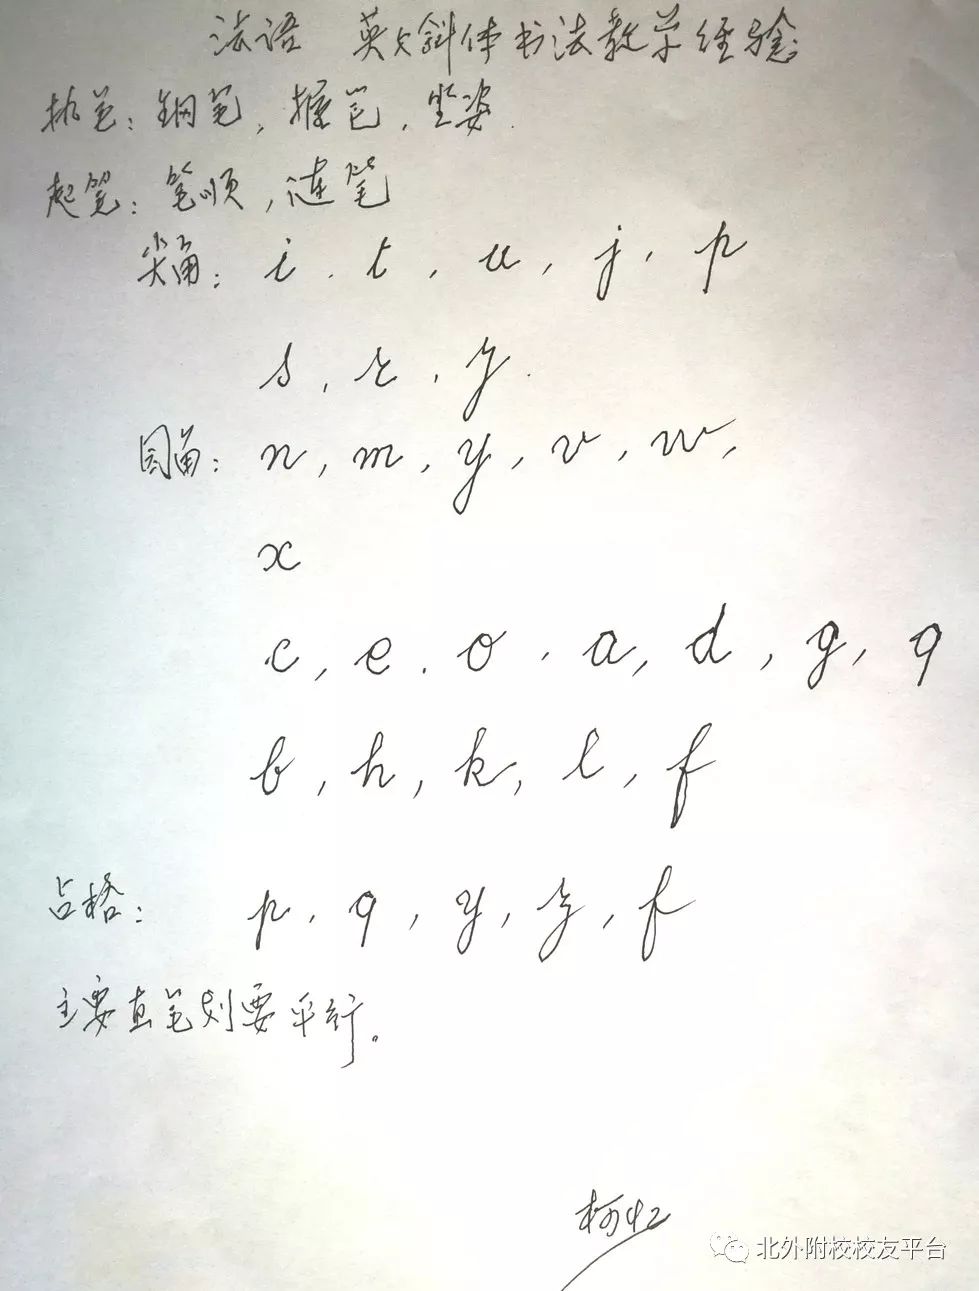 法语 英文斜体书法教学经验
执笔：钢笔，握笔，坐姿.
起笔：笔顺，连笔
尖角：i . t , u , j , p
s , r , z .
圆角：n , m , y , v , w ,
x
c , e . o . a , d , g , q
b , h , k , l , f
占格：p . q , y , z , f
主要直笔划要平行。
北外附校校友平台